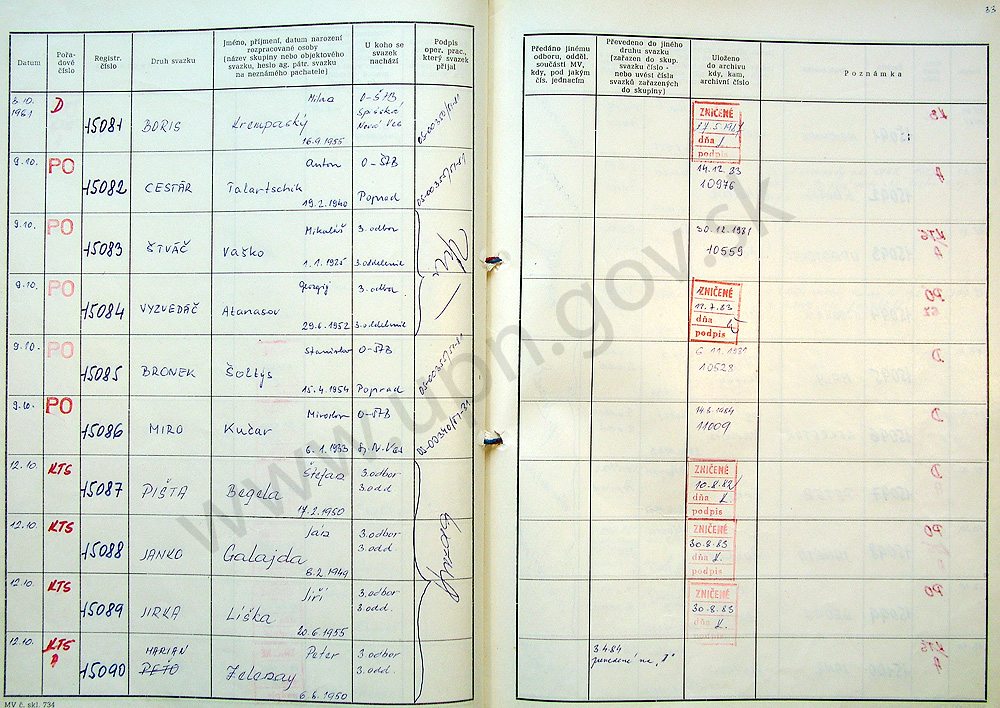 33
Datum
Pořa-
dové
číslo
Registr.
číslo
Druh svazku
Jméno, příjmení, datum narození
rozpracované osoby
(název skupiny nebo objektového
svazku, heslo ag. pátr. svazku
na neznámého pachatele)
U koho se
svazek
nachází
Podpis
oper. prac.,
který svazek
přijal
Předáno jinému
odboru, odděl.
součásti MV,
kdy, pod jakým
čís. jednacím
Převedeno do jiného
druhu svazku
(zařazen do skup.
svazku číslo -
nebo uvést čísla
svazků zařazených
do skupiny)
Uloženo
do archivu
kdy, kam,
archivní číslo
Poznámka
1981 D 15081 BORIS Krempaský 16.9.1955 O-ŠTB Spišská Nová Ves
ZNIČENÉ
dňa
podpis
9.10. PO 15082 CESTÁR Anton Talartschik 19.2.1940 O-ŠTB Poprad
14.12.83
10976
9.10. PO 15083 ŠTVÁČ Mikuláš Vaško 1.1.1925 3.odbor 3.oddelenie
30.12.1981
10559
9.10. PO 15084 VYZVEDÁČ Georgij Atanasov 29.6.1952 3.odbor 3.oddelenie
ZNIČENÉ
12.7.83
dňa
podpis
9.10. PO 15085 BRONEK Stanislav Šoltýs 15.4.1954 O-ŠTB Poprad
6 11.1981
10528
9.10. PO 15086 MIRO Miroslav Kučar 6.1.1933 O-ŠTB S.N.Ves
11009
12.10. KTS 15087 PIŠTA Štefan Begela 17.2.1950 3.odbor 3.odd
ZNIČENÉ
10.8.82
dňa
podpis
12.10. KTS 15088 JANKO Ján Galajda 8.2.1949 3.odbor 3.odd.
ZNIČENÉ
30.8.83
dňa
podpis
12.10. KTS 15089 JIRKA Jiří Líška 20.6.1955 3.odbor 3.odd.
ZNIČENÉ
30.8.83
dňa
12.10. KTS A 15090 MARIAN PETO Peter Zelesay 6.6.1950 3.odbor 3.odd.
3.4.84
MV č. skl. 734
www.upn.gov.sk